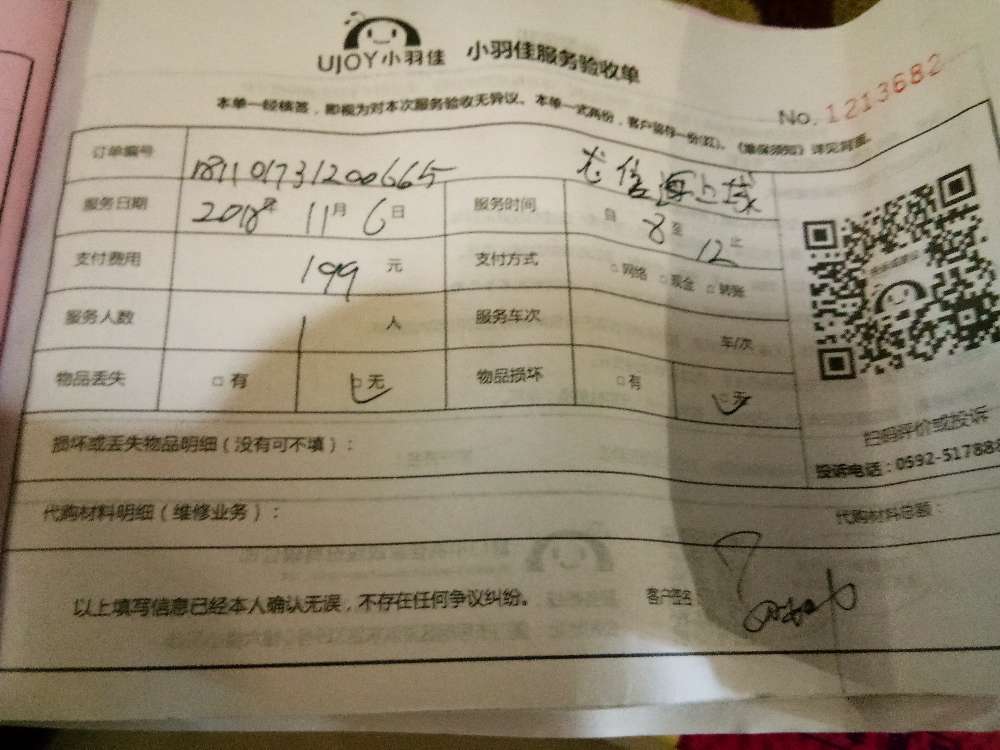 UJOY小羽佳 小羽佳服务验收单
No. 1213682
本单一经核签，即视为对本次服务验收无异议。本单一式两份，客户留存一份(红)。《维保须知》详见背面。
订单编号 181101731200665
服务日期 2018年 11月 6日 服务时间 自 8 至 12 止
支付费用 199 元 支付方式 □网络 □现金 □转账
服务人数 1 人 服务车次 车/次
物品丢失 □有 □无 物品损坏 □有 □无
扫码评价或投诉
损坏或丢失物品明细（没有可不填）：
投诉电话：0592-51788
代购材料明细（维修业务）： 代购材料总额：
以上填写信息已经本人确认无误，不存在任何争议纠纷。 客户签名